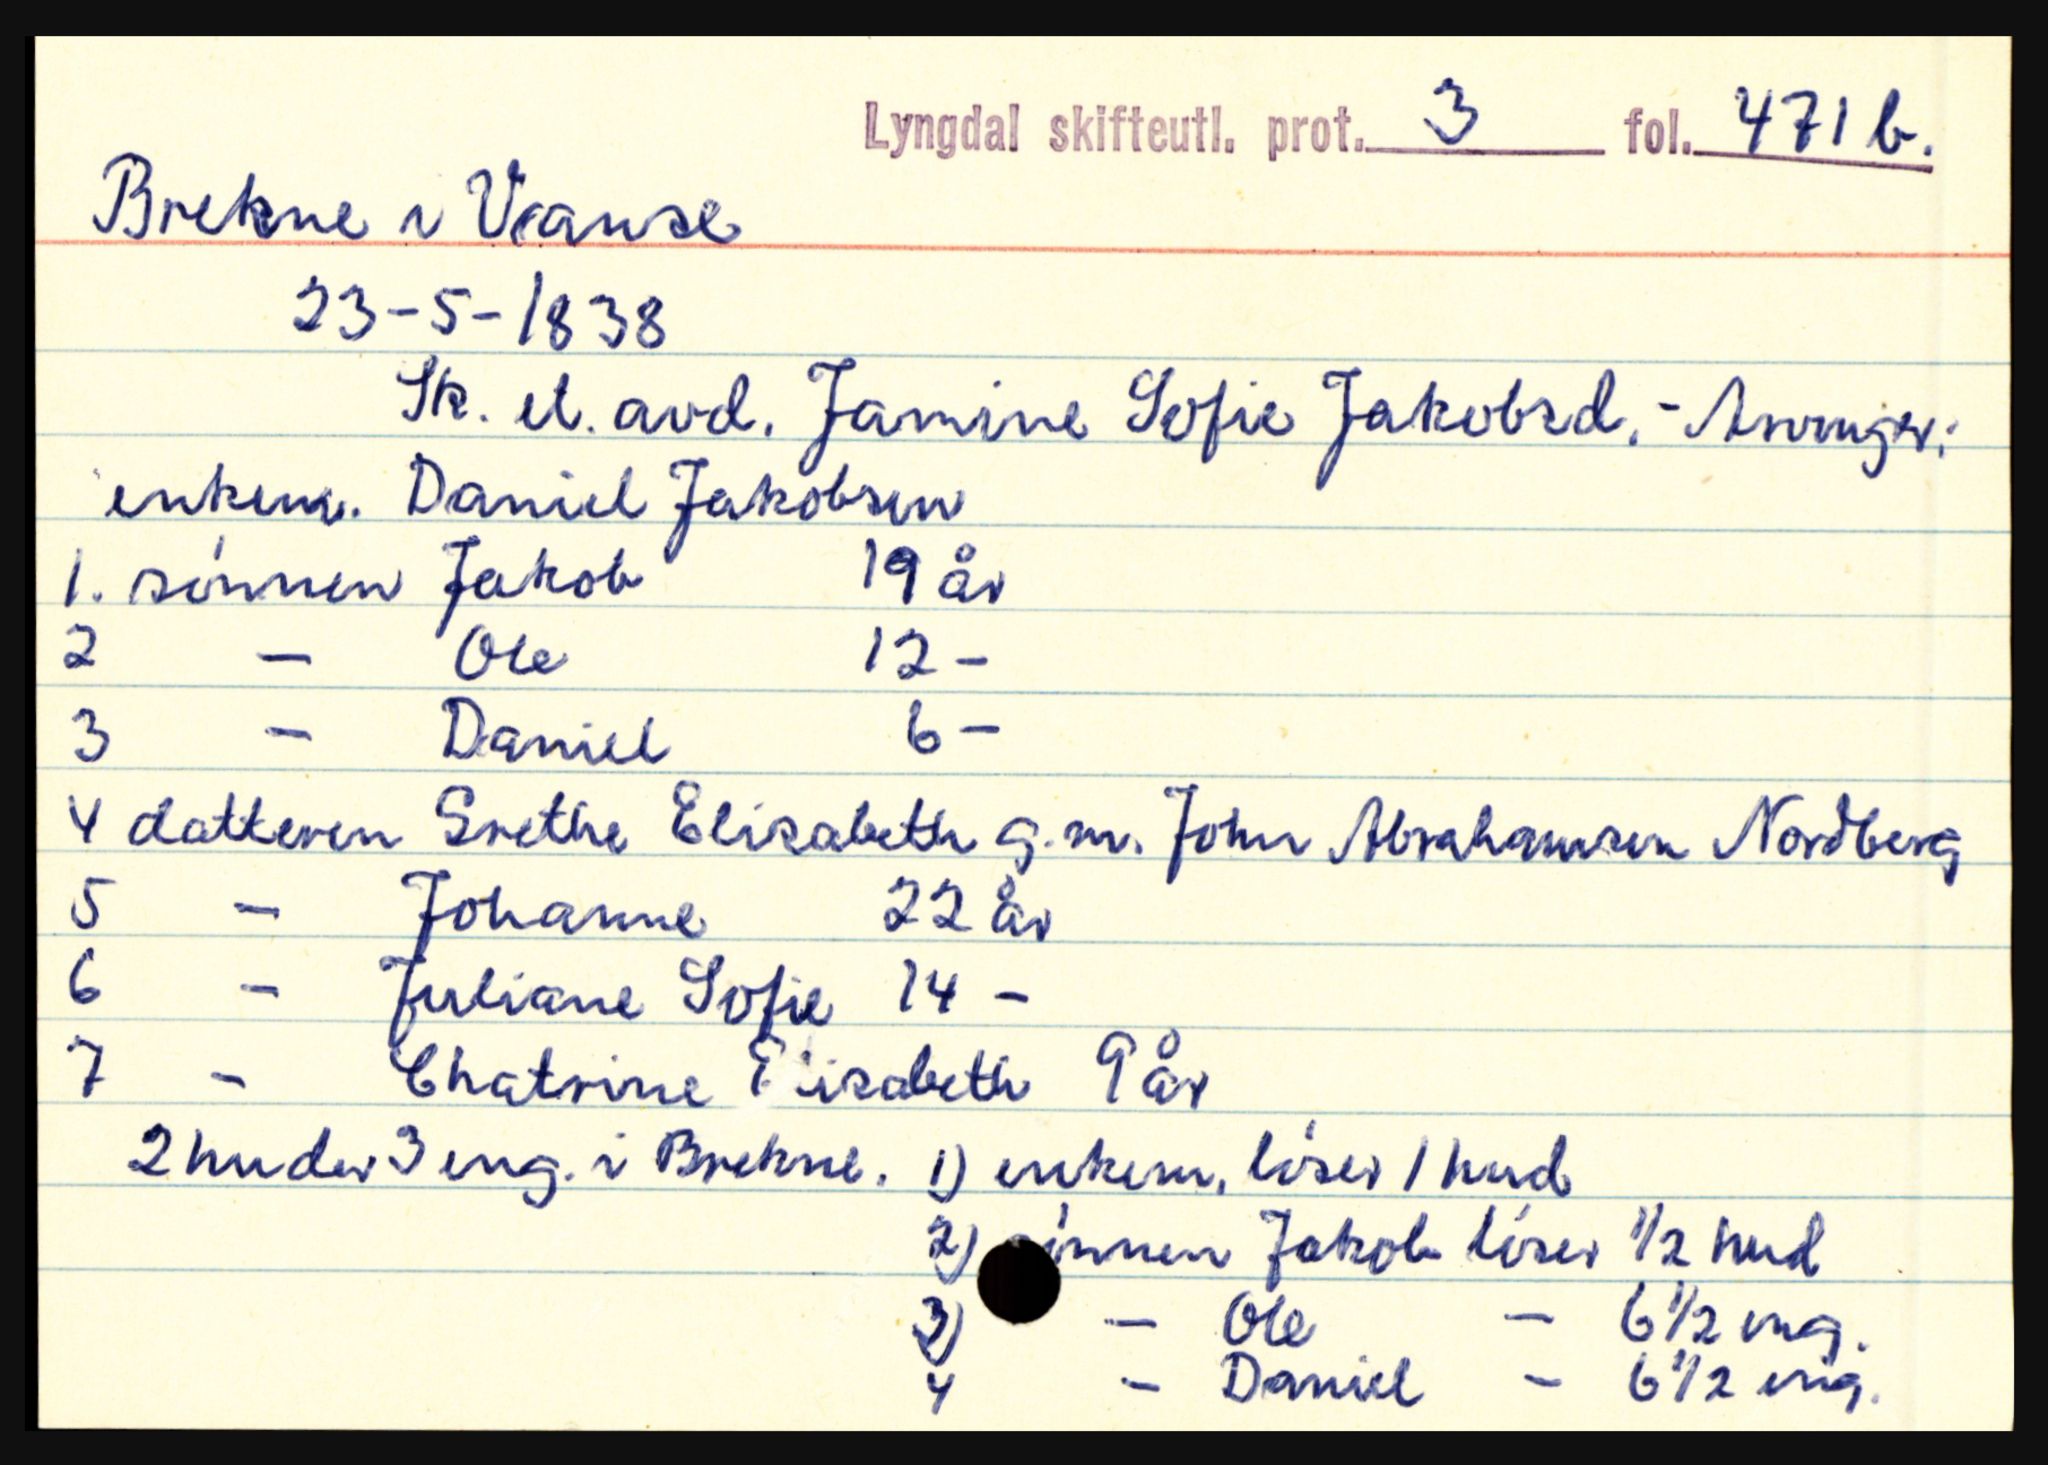 Lyngdal skifteutl. prot. 3 fol. 471 b.
Brekne i Vanse
23-5-1838
Sk. et. avd. Jamine Sofie Jakobsd. - Arvinger:
enkem. Daniel Jakobsen
1. sønnen Jakob 19 år
2 - Ole 12 -
3 - Daniel 6 -
4 datteren Grethe Elisabeth g.m. John Abrahamsen Nordberg
5 - Johanne 22 år
6 - Juliane Sofie 14 -
7 - Chatrine Elisabeth 9 år
2 huder 3 eng. i Brekne. 1) enkem. løser 1 hud
2) sønnen Jakob løser 1/2 hud
3) - Ole - 6 1/2 eng.
4 - Daniel - 6 1/2 eng.